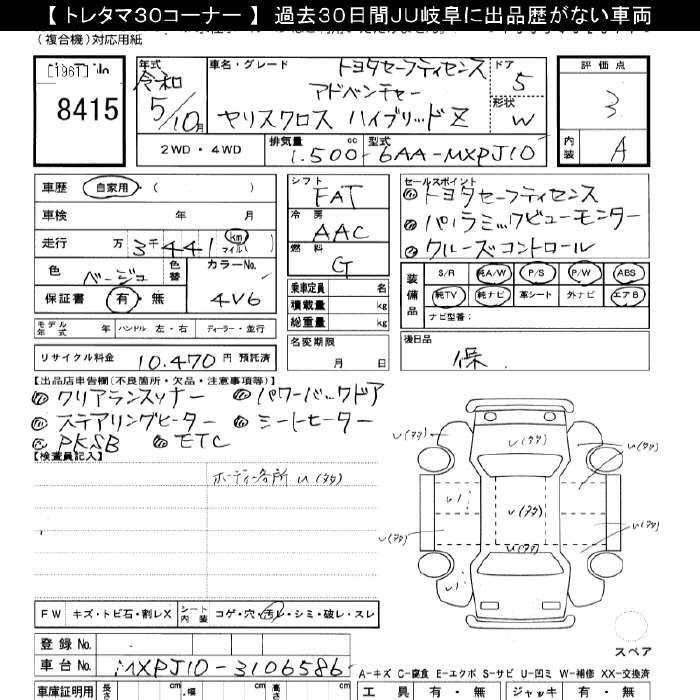 【 トレタマ30コーナー 】 過去30日間JU岐阜に出品歴がない車両
(複合機)対応用紙
8415
年式 令和 5/10月
車名・グレード トヨタセーフティセンス
アドベンチャー
ヤリスクロス ハイブリッドZ
ドア 5
形状 W
評価点 3
内装 A
2WD・4WD 排気量 1.500 cc 型式 6AA-MXPJ10
車歴 自家用・( )
車検 年 月
走行 万 3千441 km マイル( )
色 ベージュ 色替 カラーNo. 4V6
保証書 有・無
モデル年式 年 ハンドル 左・右 ディーラー・並行
リサイクル料金 10.470 円 預託済
シフト FAT
冷房 AAC
燃料 G
乗車定員 名
積載量 kg
総重量 kg
名変期限 月 日
セールスポイント
トヨタセーフティセンス
パノラミックビューモニター
クルーズコントロール
装備品 S/R 純A/W P/S P/W ABS
純TV 純ナビ 革シート 外ナビ エアB
ナビ型番:
後日品 保
【出品店申告欄(不良箇所・欠品・注意事項等)】
クリアランスソナー パワーバックドア
ステアリングヒーター シートヒーター
PKSB ETC
【検査員記入】
ボーディ各所 U(タタ)
U(タタ) U(タタ) U(タタ)
U(タタ)
U(タタ) U(タタ)
FW キズ・トビ石・割レX シート内装 コゲ・穴・汚レ・シミ・破レ・スレ
スペア
登録 No.
車台 No. MXPJ10-3106586
A-キズ C-腐食 E-エクボ S-サビ U-凹ミ W-補修 XX-交換済
車庫証明用 長さ cm 幅 cm 高さ cm 工具 有・無 ジャッキ 有・無